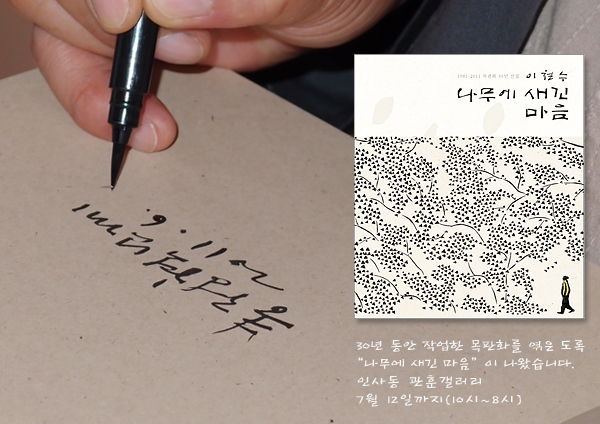 1981-2011 목판화 30년 이철수
나무에 새긴
마음
30년 동안 작업한 목판화를 엮은 도록
“나무에 새긴 마음” 이 나왔습니다.
인사동 관훈갤러리
7월 12일까지(10시~8시)